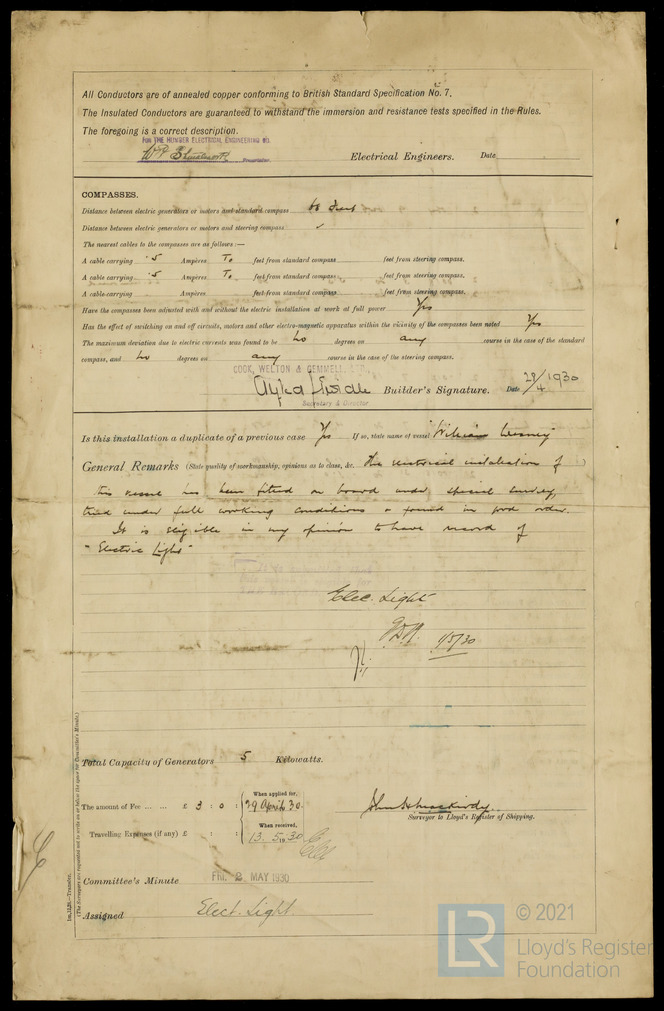 All Conductors are of annealed copper conforming to British Standard Specification No. 7.
The Insulated Conductors are guaranteed to withstand the immersion and resistance tests specified in the Rules.
The foregoing is a correct description.
FOR THE HUMBER ELECTRICAL ENGINEERING CO.
Electrical Engineers. Date
COMPASSES.
Distance between electric generators or motors and standard compass Feet
Distance between electric generators or motors and steering compass ✓
The nearest cables to the compasses are as follows:—
A cable carrying .5 Ampères To feet from standard compass feet from steering compass.
A cable carrying .5 Ampères To feet from standard compass feet from steering compass.
A cable carrying Ampères feet from standard compass feet from steering compass.
Have the compasses been adjusted with and without the electric installation at work at full power Yes
Has the effect of switching on and off circuits, motors and other electro-magnetic apparatus within the vicinity of the compasses been noted Yes
The maximum deviation due to electric currents was found to be no degrees on any course in the case of the standard
compass, and no degrees on any course in the case of the steering compass.
COOK, WELTON & GEMMELL LTD.,
Builder's Signature. Date 29/4/1930
Secretary & Director
Is this installation a duplicate of a previous case Yes If so, state name of vessel William Wesney
General Remarks (State quality of workmanship, opinions as to class, &c. The electrical installation of
this vessel has been fitted on board under special survey,
tried under full working conditions & found in good order.
It is eligible in my opinion to have record of
"Electric Light"
Elec. Light
1/5/30
Total Capacity of Generators 5 Kilowatts.
The amount of Fee ... ... £ 3 : 0 :
When applied for,
29 April 30.
When received,
Travelling Expenses (if any) £ : :
13. 5. 1930
Surveyor to Lloyd's Register of Shipping.
Committee's Minute FRI. 2 MAY 1930
Assigned Elect. Light
(The Surveyors are requested not to write on or below the space for Committee's Minute.)
LR
© 2021
Lloyd's Register
Foundation